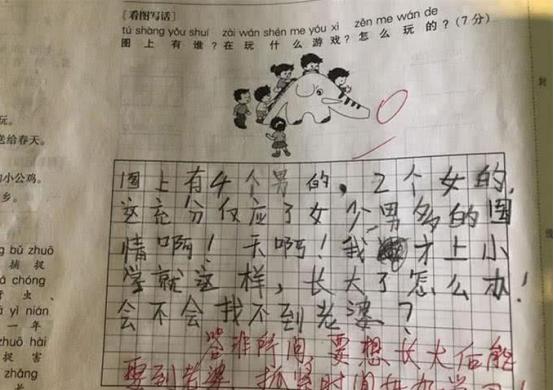 [看图写话]
tú shàng yǒu shuí zài wán shén me yóu xì zěn me wán de
图上有谁?在玩什么游戏?怎么玩的?(7分)
玩。
送给春天。
的小公鸡。
乡。
g bǔ zhuō
捕捉
á chóng
虫、
ì yì nián
一年
zhuō hài
捉害
zhǎng
长
图上有4个男的,2个女的,
这充分反应了女少男多的国
情啊!天啊!我才上小
学就这样,长大了怎么办!
会不会找不到老婆?
答非所问,要想长大后能
要到老婆,抓紧时间